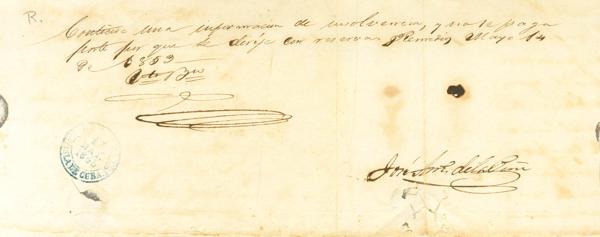 R.
Contiene una informacion de insolvencia, y no se paga
porte por que se dirije con reserva. Remedios Mayo 14
de 1853
José Anto. de la Peña
CUBA